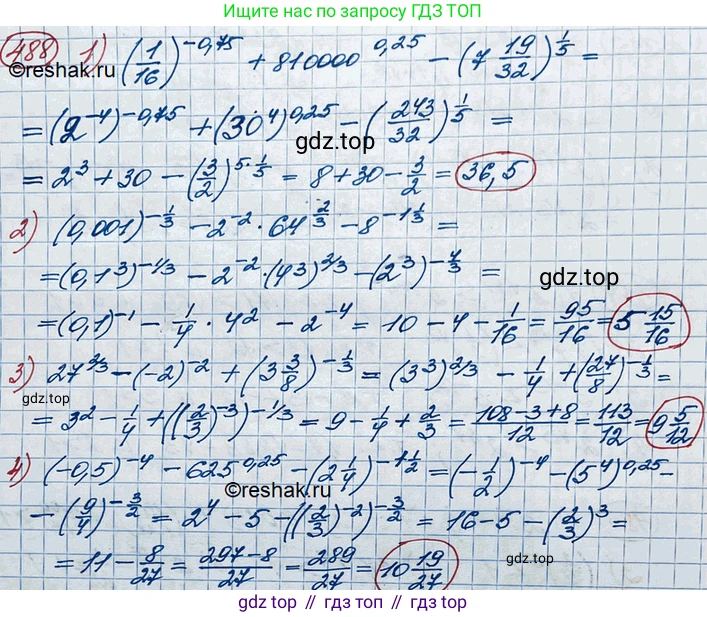 Ищите нас по запросу ГДЗ ТОП
488 1) (1/16)^(-0,75) + 810000^(0,25) - (7 19/32)^(1/5) =
©reshak.ru
= (2^(-4))^(-0,75) + (30^4)^(0,25) - (243/32)^(1/5) =
gdz.top
= 2^3 + 30 - (3/2)^(5·1/5) = 8 + 30 - 3/2 = 36,5
2) (0,001)^(-1/3) - 2^(-2) · 64^(2/3) - 8^(-1 1/3) =
= (0,1^3)^(-1/3) - 2^(-2) · (4^3)^(2/3) - (2^3)^(-4/3) =
gdz.top
= (0,1)^(-1) - 1/4 · 4^2 - 2^(-4) = 10 - 4 - 1/16 = 95/16 = 5 15/16
3) 27^(2/3) - (-2)^(-2) + (3 3/8)^(-1/3) = (3^3)^(2/3) - 1/4 + (27/8)^(-1/3) =
= 3^2 - 1/4 + ((2/3)^(-3))^(-1/3) = 9 - 1/4 + 2/3 = (108-3+8)/12 = 113/12 = 9 5/12
4) (-0,5)^(-4) - 625^(0,25) - (2 1/4)^(-1 1/2) = (-1/2)^(-4) - (5^4)^(0,25) -
©reshak.ru
- (9/4)^(-3/2) = 2^4 - 5 - ((2/3)^(-2))^(-3/2) = 16 - 5 - (2/3)^3 =
= 11 - 8/27 = (297-8)/27 = 289/27 = 10 19/27
gdz.top
gdz top // гдз топ // gdz.top